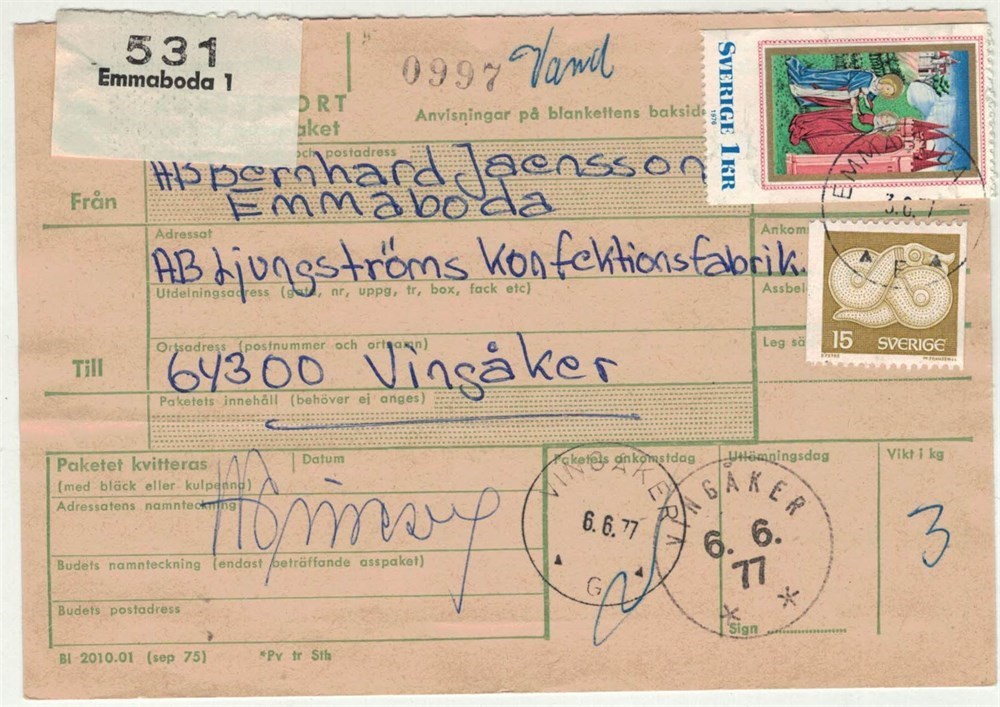 531
Emmaboda 1
0997 Vand
ORT
aket
Anvisningar på blankettens baksid
och postadress
Från
AB Bernhard Jaensson
Emmaboda
SVERIGE 1 KR
1976
EMMABODA
3.6.77
Adressat
Ankoms
AB Ljungströms Konfektionsfabrik.
Utdelningsadress (gata, nr, uppg, tr, box, fack etc)
Assbe
15 SVERIGE
Till
Ortsadress (postnummer och ortnamn)
Leg sä
64300 Vingåker
Paketets innehåll (behöver ej anges)
Paketet kvitteras
(med bläck eller kulpenna)
Datum
Paketets ankomstdag
Utlämningsdag
Vikt i kg
Adressatens namnteckning
VINGÅKER 1
6.6.77
G
VINGÅKER
6. 6.
77
3
Budets namnteckning (endast beträffande asspaket)
Budets postadress
Sign
BI 2010.01 (sep 75)
*Pv tr Sth